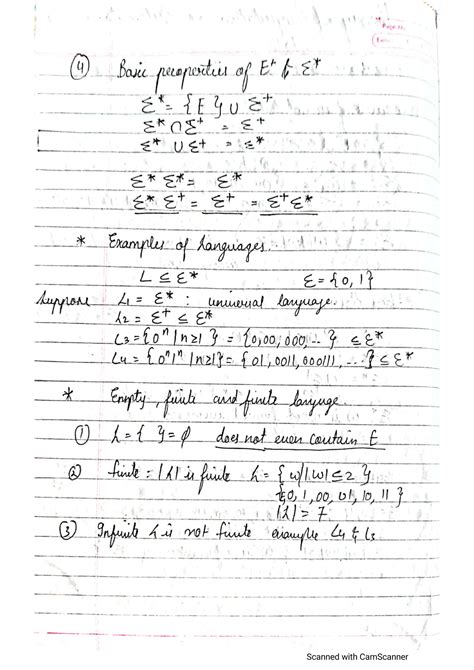 Page No.
④ Basic peroperties of E⁺ & Σ*
Σ* = {E} ∪ Σ⁺
Σ* ∩ Σ⁺ = Σ⁺
Σ* ∪ Σ⁺ = Σ*
Σ* Σ* = Σ*
Σ* Σ⁺ = Σ⁺ = Σ⁺ Σ*
* Examples of Languages.
L ⊆ Σ* Σ = {0, 1}
Suppose L1 = Σ* : universal language.
L2 = Σ⁺ ⊆ Σ*
L3 = {0ⁿ | n≥1} = {0,00,000,...} ⊆ Σ*
L4 = {0ⁿ1ⁿ | n≥1} = {01, 0011, 000111, ...} ⊆ Σ*
* Empty, finite and finite language
① L = { } = ϕ does not even contain E
② finite : |L| is finite L = { w | |w| ≤ 2 }
0, 1, 00, 01, 10, 11 }
|L| = 7
③ Infinite L is not finite example L4 & L3
Scanned with CamScanner